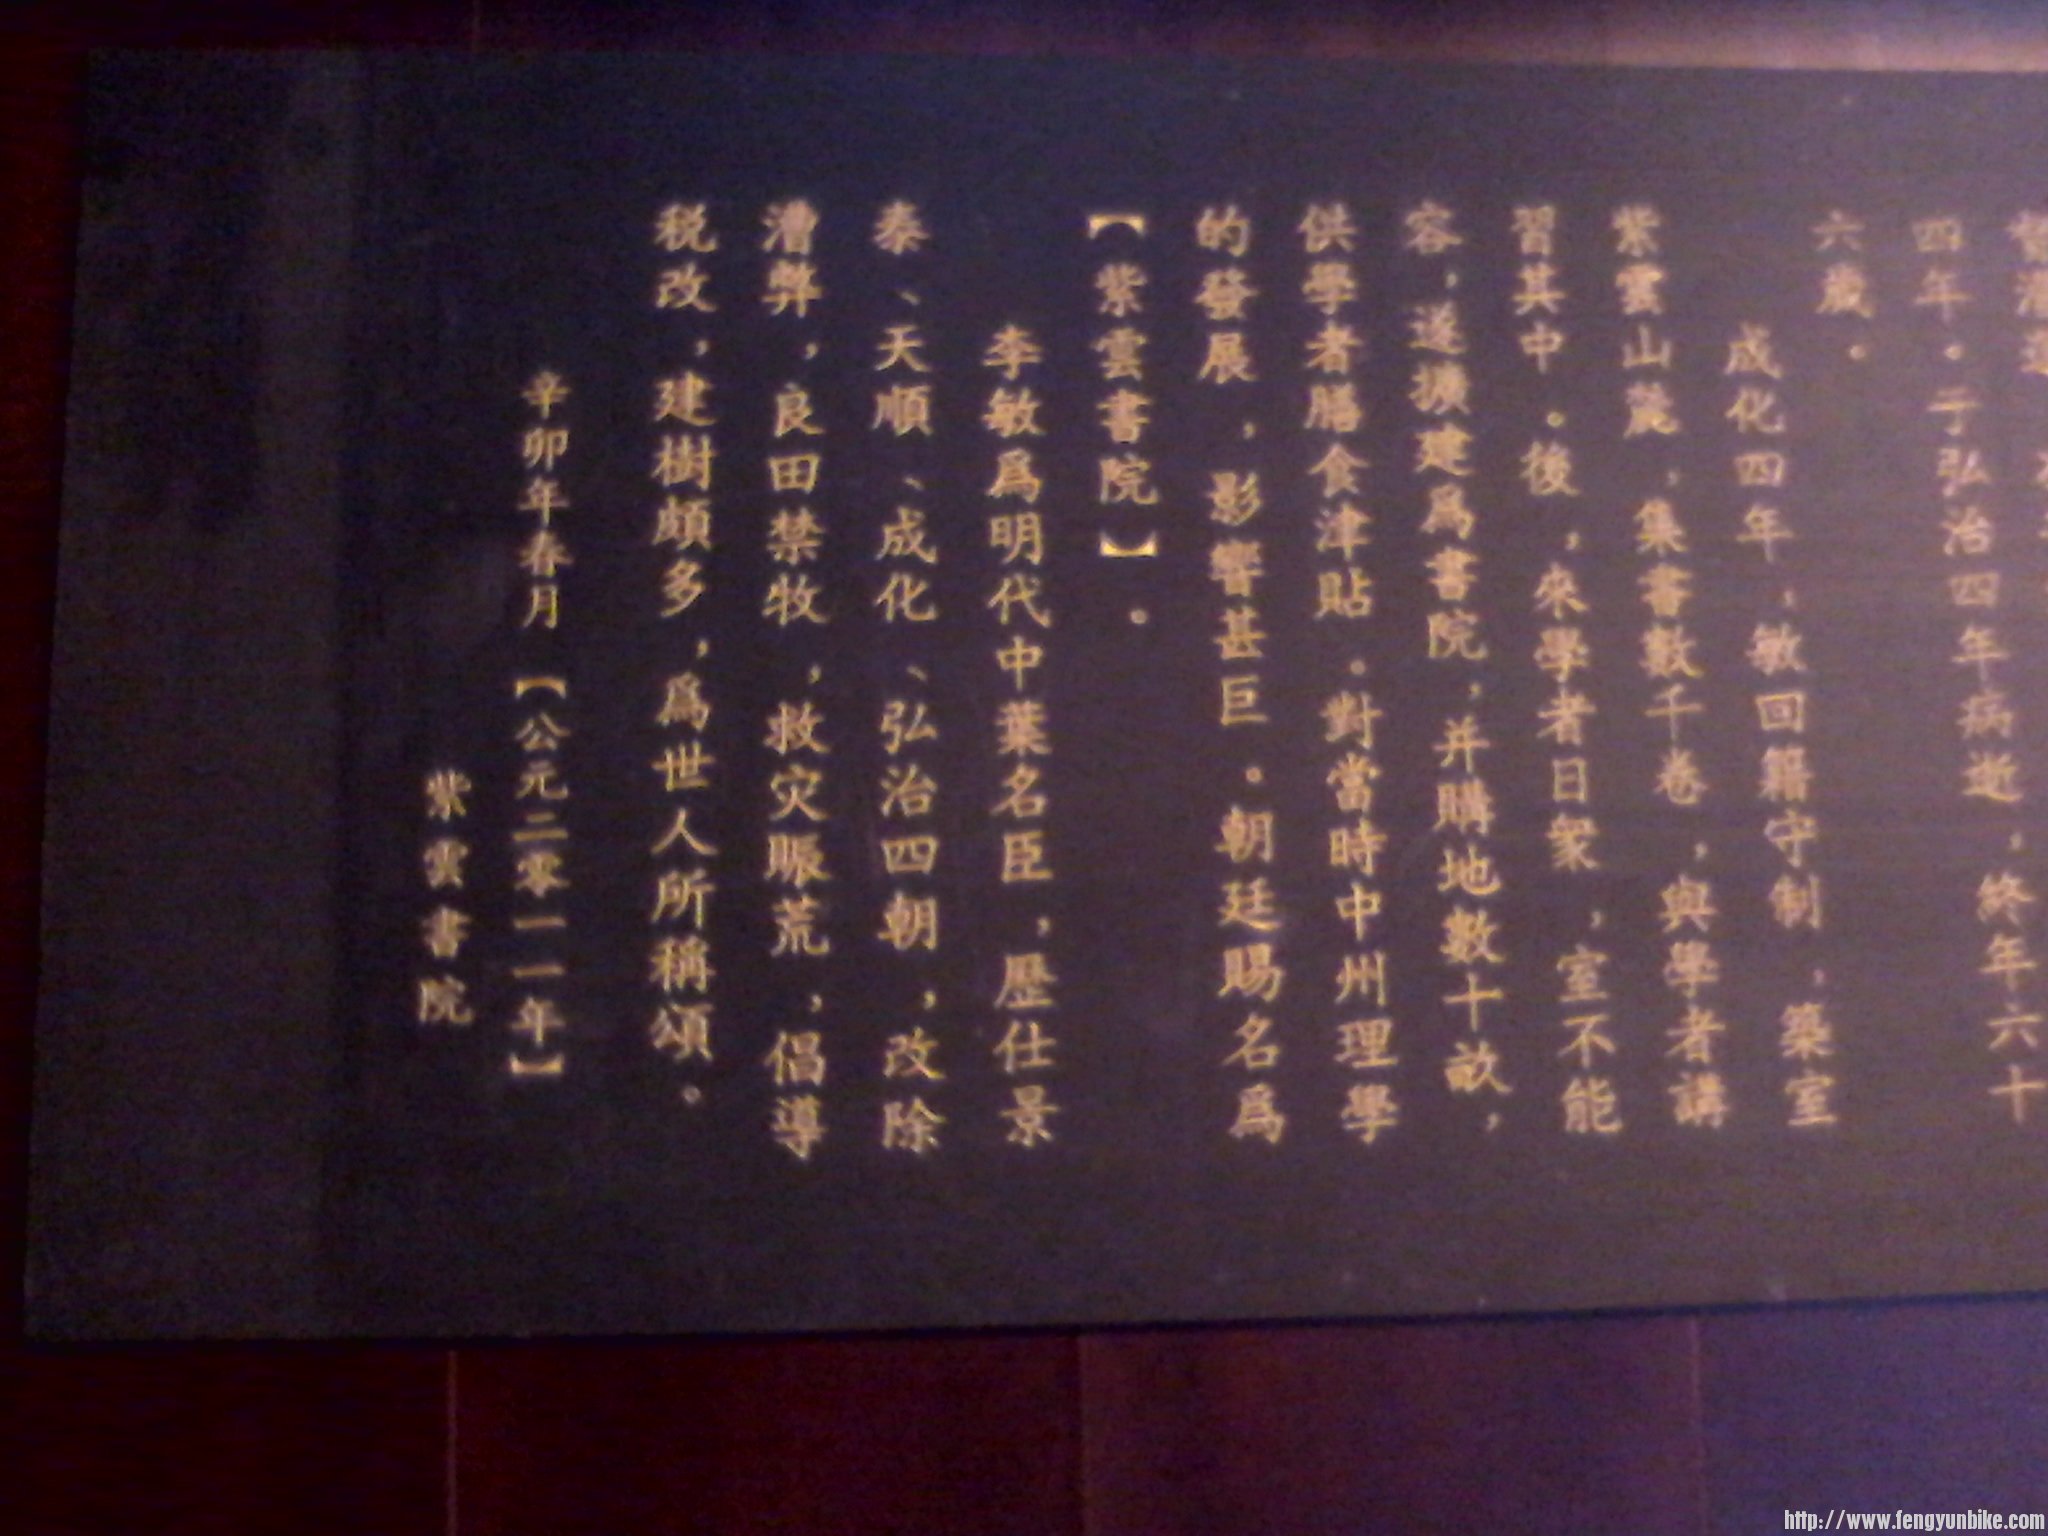 四年。于弘治四年病逝，終年六十
六歲。
成化四年，敏回籍守制，築室
紫雲山麓，集書數千卷，與學者講
習其中。後，來學者日衆，室不能
容，遂擴建爲書院，并購地數十畝，
供學者膳食津貼。對當時中州理學
的發展，影響甚巨。朝廷賜名爲
【紫雲書院】。
李敏爲明代中葉名臣，歷仕景
泰、天順、成化、弘治四朝，改除
漕弊，良田禁牧，救灾賑荒，倡導
税改，建樹頗多，爲世人所稱頌。
辛卯年春月【公元二零一一年】
紫雲書院
http://www.fengyunbike.com